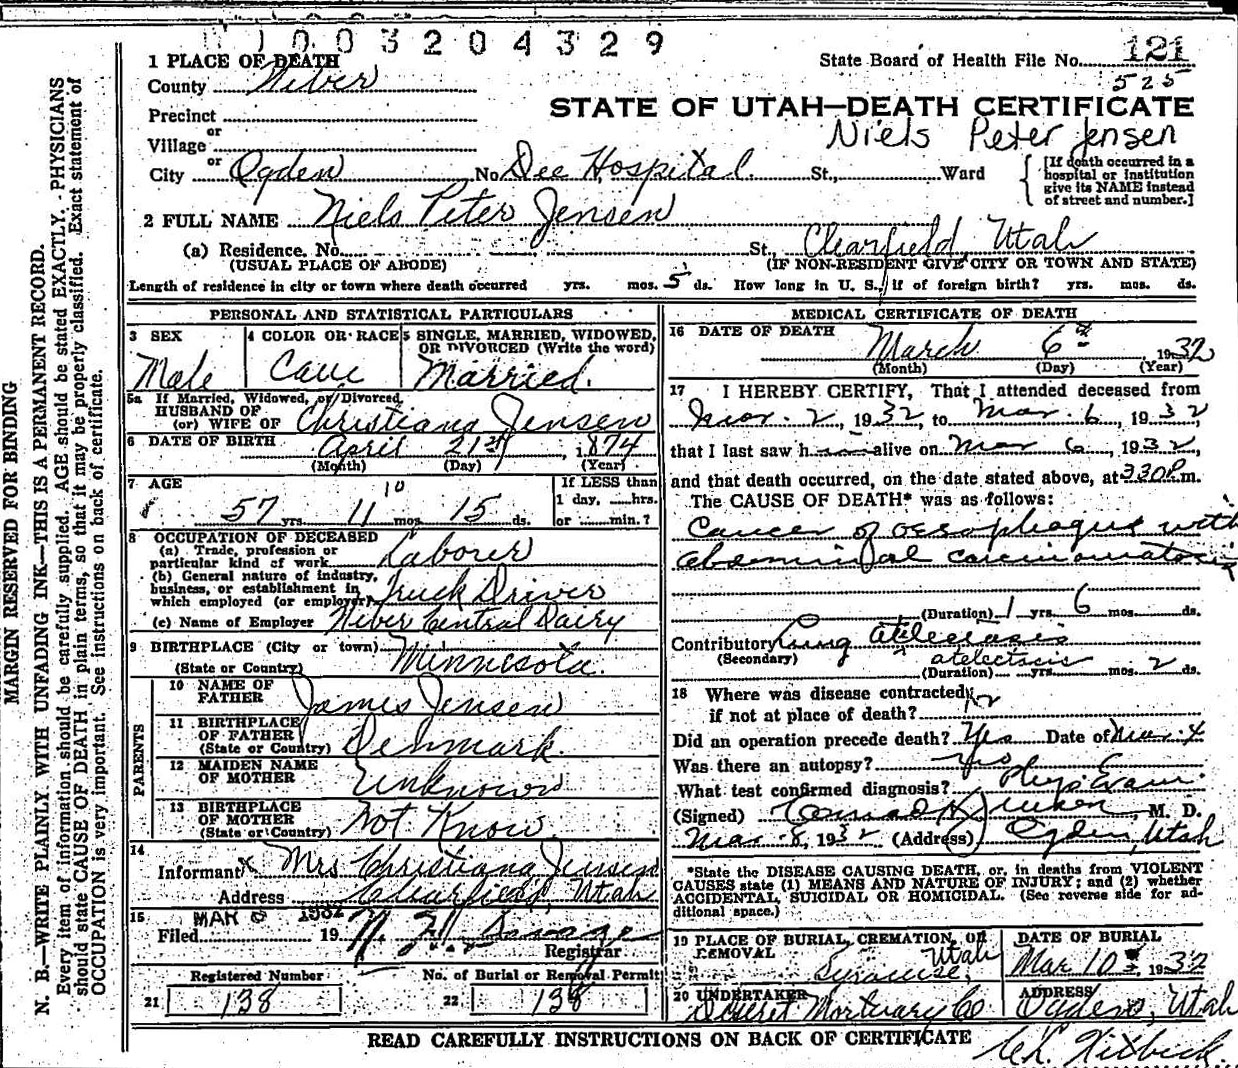 1003204329
1 PLACE OF DEATH
State Board of Health File No. 121
County Weber
525
STATE OF UTAH—DEATH CERTIFICATE
Precinct
or
Niels Peter Jensen
Village
or
City Ogden No. Dee Hospital St., Ward
[If death occurred in a
hospital or institution
give its NAME instead
of street and number.]
2 FULL NAME Niels Peter Jensen
(a) Residence. No. St., Clearfield, Utah
(USUAL PLACE OF ABODE) (IF NON-RESIDENT GIVE CITY OR TOWN AND STATE)
Length of residence in city or town where death occurred yrs. mos. 5 ds. How long in U. S., if of foreign birth? yrs. mos. ds.
PERSONAL AND STATISTICAL PARTICULARS
3 SEX
Male
4 COLOR OR RACE
Cauc
5 SINGLE, MARRIED, WIDOWED,
OR DIVORCED (Write the word)
Married.
5a If Married, Widowed, or Divorced
HUSBAND OF
(or) WIFE OF Christiana Jensen
6 DATE OF BIRTH April 21st, 1874
(Month) (Day) (Year)
7 AGE
10
57 yrs. 11 mos. 15 ds.
If LESS than
1 day, hrs.
or min.?
8 OCCUPATION OF DECEASED
(a) Trade, profession or
particular kind of work Laborer
(b) General nature of industry,
business, or establishment in
which employed (or employer) Truck Driver
(c) Name of Employer Weber Central Dairy
9 BIRTHPLACE (City or town)
(State or Country) Minnesota.
PARENTS
10 NAME OF
FATHER James Jensen
11 BIRTHPLACE
OF FATHER
(State or Country) Denmark.
12 MAIDEN NAME
OF MOTHER Unknown
13 BIRTHPLACE
OF MOTHER
(State or Country) Not Know.
14
Informant x Mrs Christiana Jensen
Address Clearfield, Utah
15 MAR 8 1932
Filed 19 Savage
Registrar
Registered Number
21 138
No. of Burial or Removal Permit
22 138
MEDICAL CERTIFICATE OF DEATH
16 DATE OF DEATH
March 6th, 1932
(Month) (Day) (Year)
17 I HEREBY CERTIFY, That I attended deceased from
Mar. 2, 1932, to Mar. 6, 1932
that I last saw h im alive on Mar 6, 1932,
and that death occurred, on the date stated above, at 330 P.m.
The CAUSE OF DEATH* was as follows:
Cancer of oesophagus with
abdominal carcinomatosis
(Duration) 1 yrs. 6 mos. ds.
Contributory Lung atelecrasis
(Secondary) atelectscis
(Duration) yrs. mos. 2 ds.
18 Where was disease contracted
if not at place of death?
Did an operation precede death? Yes Date of Mar. 4
Was there an autopsy? Yes
What test confirmed diagnosis? Phys Exam.
(Signed) Conrad H Jensen, M. D.
Mar. 8, 1932 (Address) Ogden, Utah
*State the DISEASE CAUSING DEATH, or, in deaths from VIOLENT
CAUSES state (1) MEANS AND NATURE OF INJURY; and (2) whether
ACCIDENTAL, SUICIDAL OR HOMICIDAL. (See reverse side for ad-
ditional space.)
19 PLACE OF BURIAL, CREMATION, OR
REMOVAL Utah
Syracuse,
DATE OF BURIAL
Mar 10th, 1932
20 UNDERTAKER
Deseret Mortuary Co
ADDRESS
Ogden, Utah
READ CAREFULLY INSTRUCTIONS ON BACK OF CERTIFICATE
MARGIN RESERVED FOR BINDING
N. B.—WRITE PLAINLY WITH UNFADING INK—THIS IS A PERMANENT RECORD.
Every item of information should be carefully supplied. AGE should be stated EXACTLY. PHYSICIANS
should state CAUSE OF DEATH in plain terms, so that it may be properly classified. Exact statement of
OCCUPATION is very important. See instructions on back of certificate.